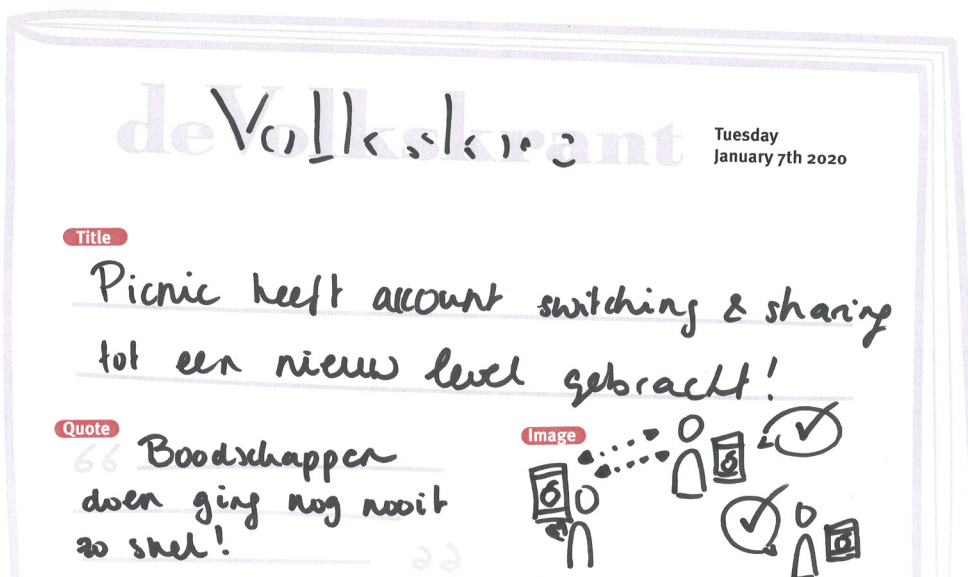 de Volkskrant
Tuesday
January 7th 2020
Title
Picnic heeft account switching & sharing
tot een nieuw level gebracht!
Quote
Image
Boodschappen
doen ging nog nooit
zo snel!